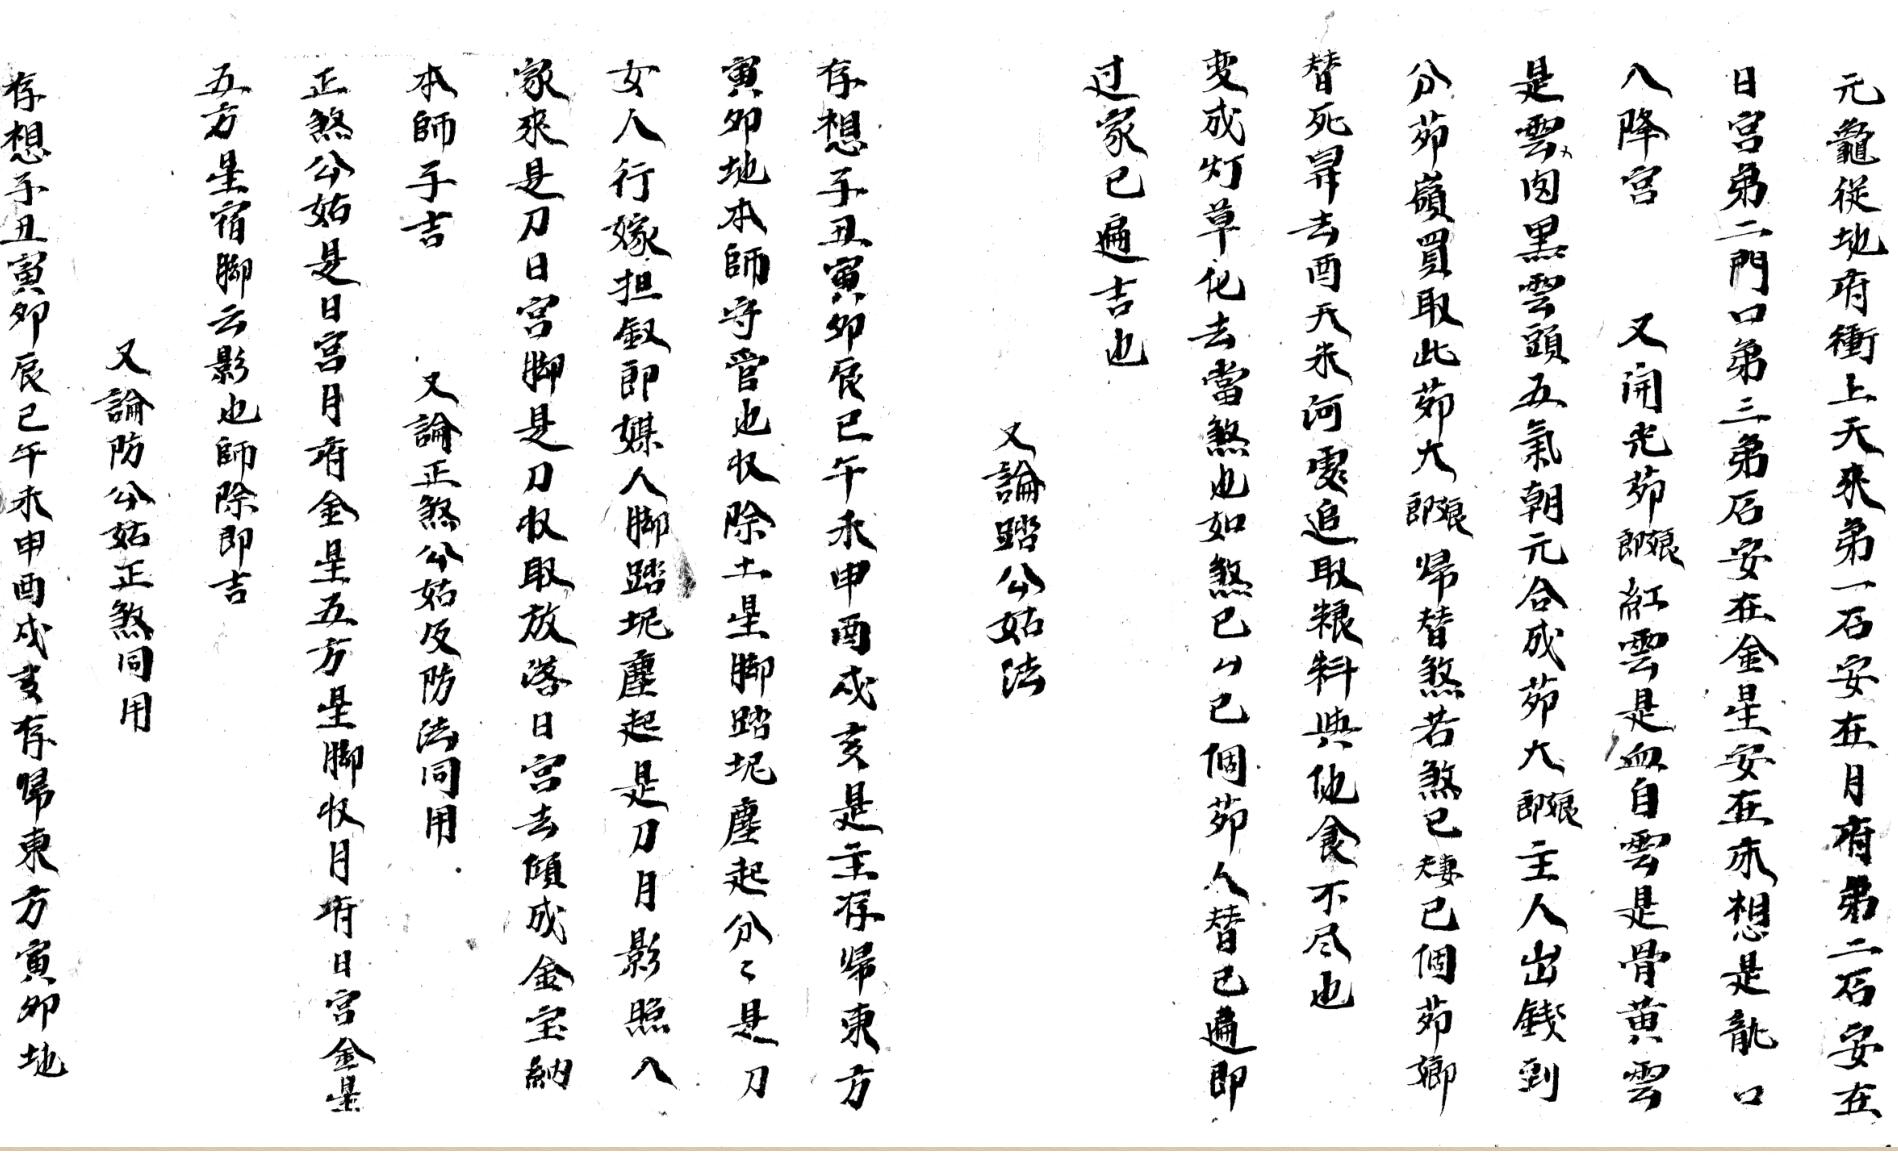 元龍從地府衝上天來弟一石安在月府弟二石安在
日宮弟二門口弟三弟石安在金星安在末想是龍口
入降宮　又開光茆娘郎紅雲是血自雲是骨黃雲
是雲肉黑雲頭五氣朝元合成茆大娘郎主人出錢到
分茆嶺買取此茆大娘郎歸替煞若煞已妻夫已個茆娘
替死昇去酉天未河處追取粮料與他食不尽也
变成灯草化去當煞也如煞已以已個茆人替已遍即
过家已遍吉也
又論踏公姑法
存想子丑寅卯辰巳午未申酉戌亥是主存歸東方
寅卯地本師守管也收除土星脚踏坭塵起分々是刀
女人行嫁担釵即媒人脚踏坭塵起是刀月影照入
家來是刀日宮脚是刀收取放落日宮去傾成金宝納
本師子吉　又論正煞公姑反防法同用
正煞公姑是日宮月府金星五方星脚收月府日宮金星
五方星宿脚云影也師除即吉
又論防公姑正煞同用
存想子丑寅卯辰巳午未申酉戌亥存歸東方寅卯地